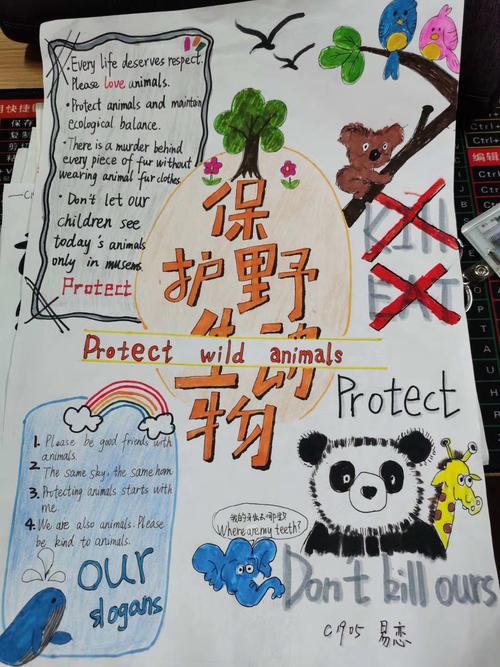 Every life deserves respect.
Please love animals.
Protect animals and maintain
ecological balance.
There is a murder behind
every piece of fur without
wearing animal fur clothes.
Don't let our
children see
today's animals
only in musems.
Protect
保
护野
生动
物
Protect wild animals
Kill
EAT
Protect
1. Please be good friends with
animals.
2. The same sky, the same hom
3. Protecting animals starts with
me.
4. We are also animals. Please
be kind to animals.
our
slogans
我的牙齿去哪了?
Where are my teeth?
Don't kill ours
C1905 易恋
Ctrl+
Ctrl+
Ctrl+